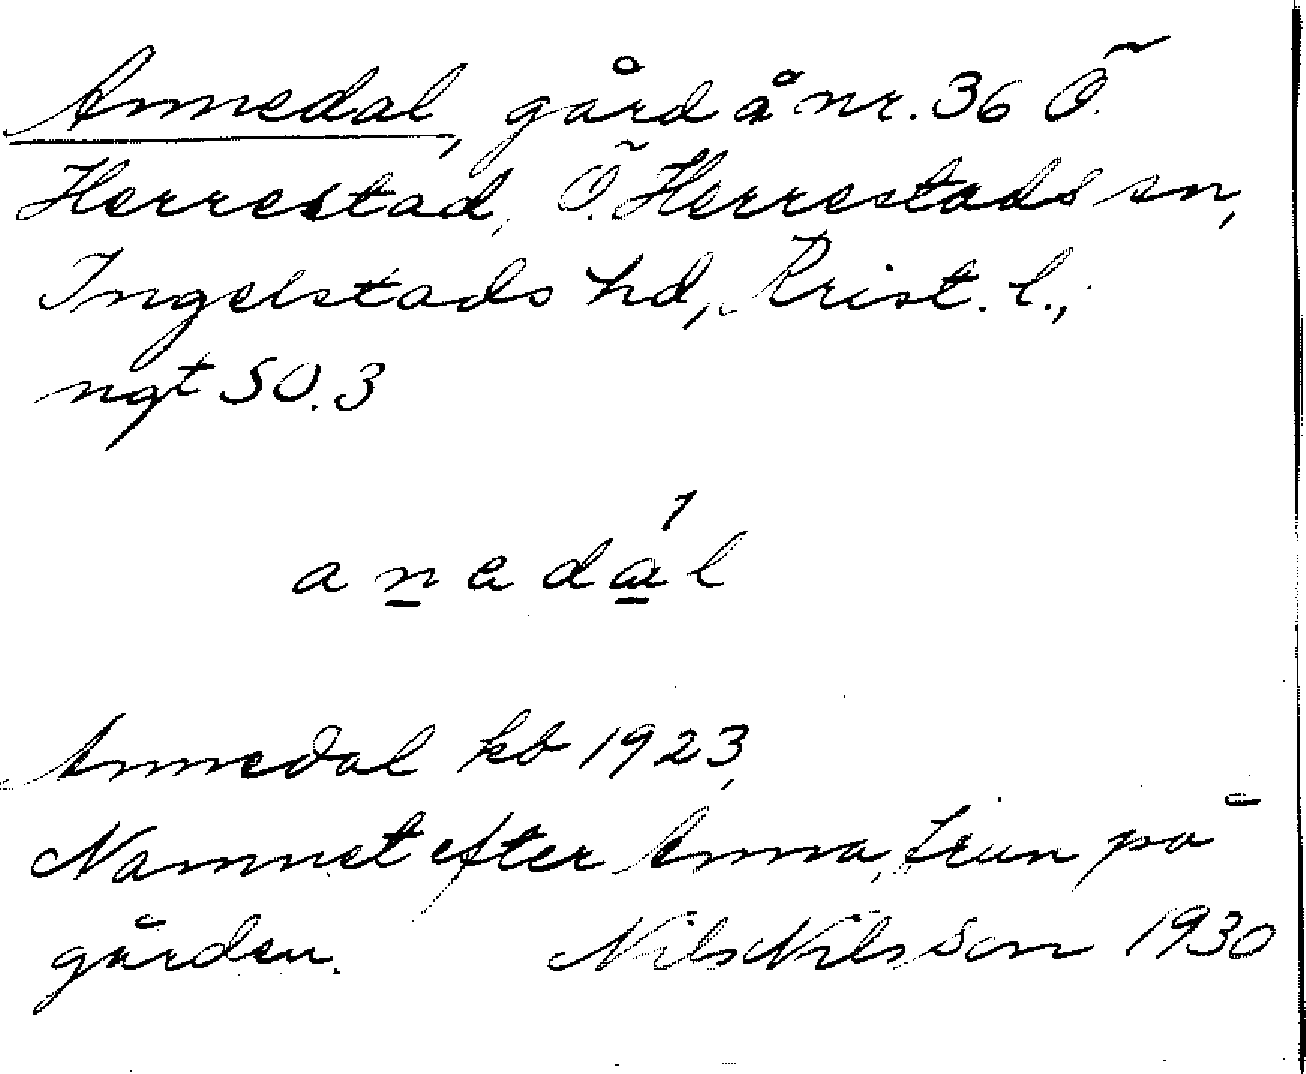 Annedal, gård å nr. 36 Ö.
Herrestad, Ö. Herrestads sn,
Ingelstads hd, Krist. l.,
ngt SO. 3
anedál
Annedal kb 1923,
Namnet efter Anna, frun på
gården. Nils Nilsson 1930